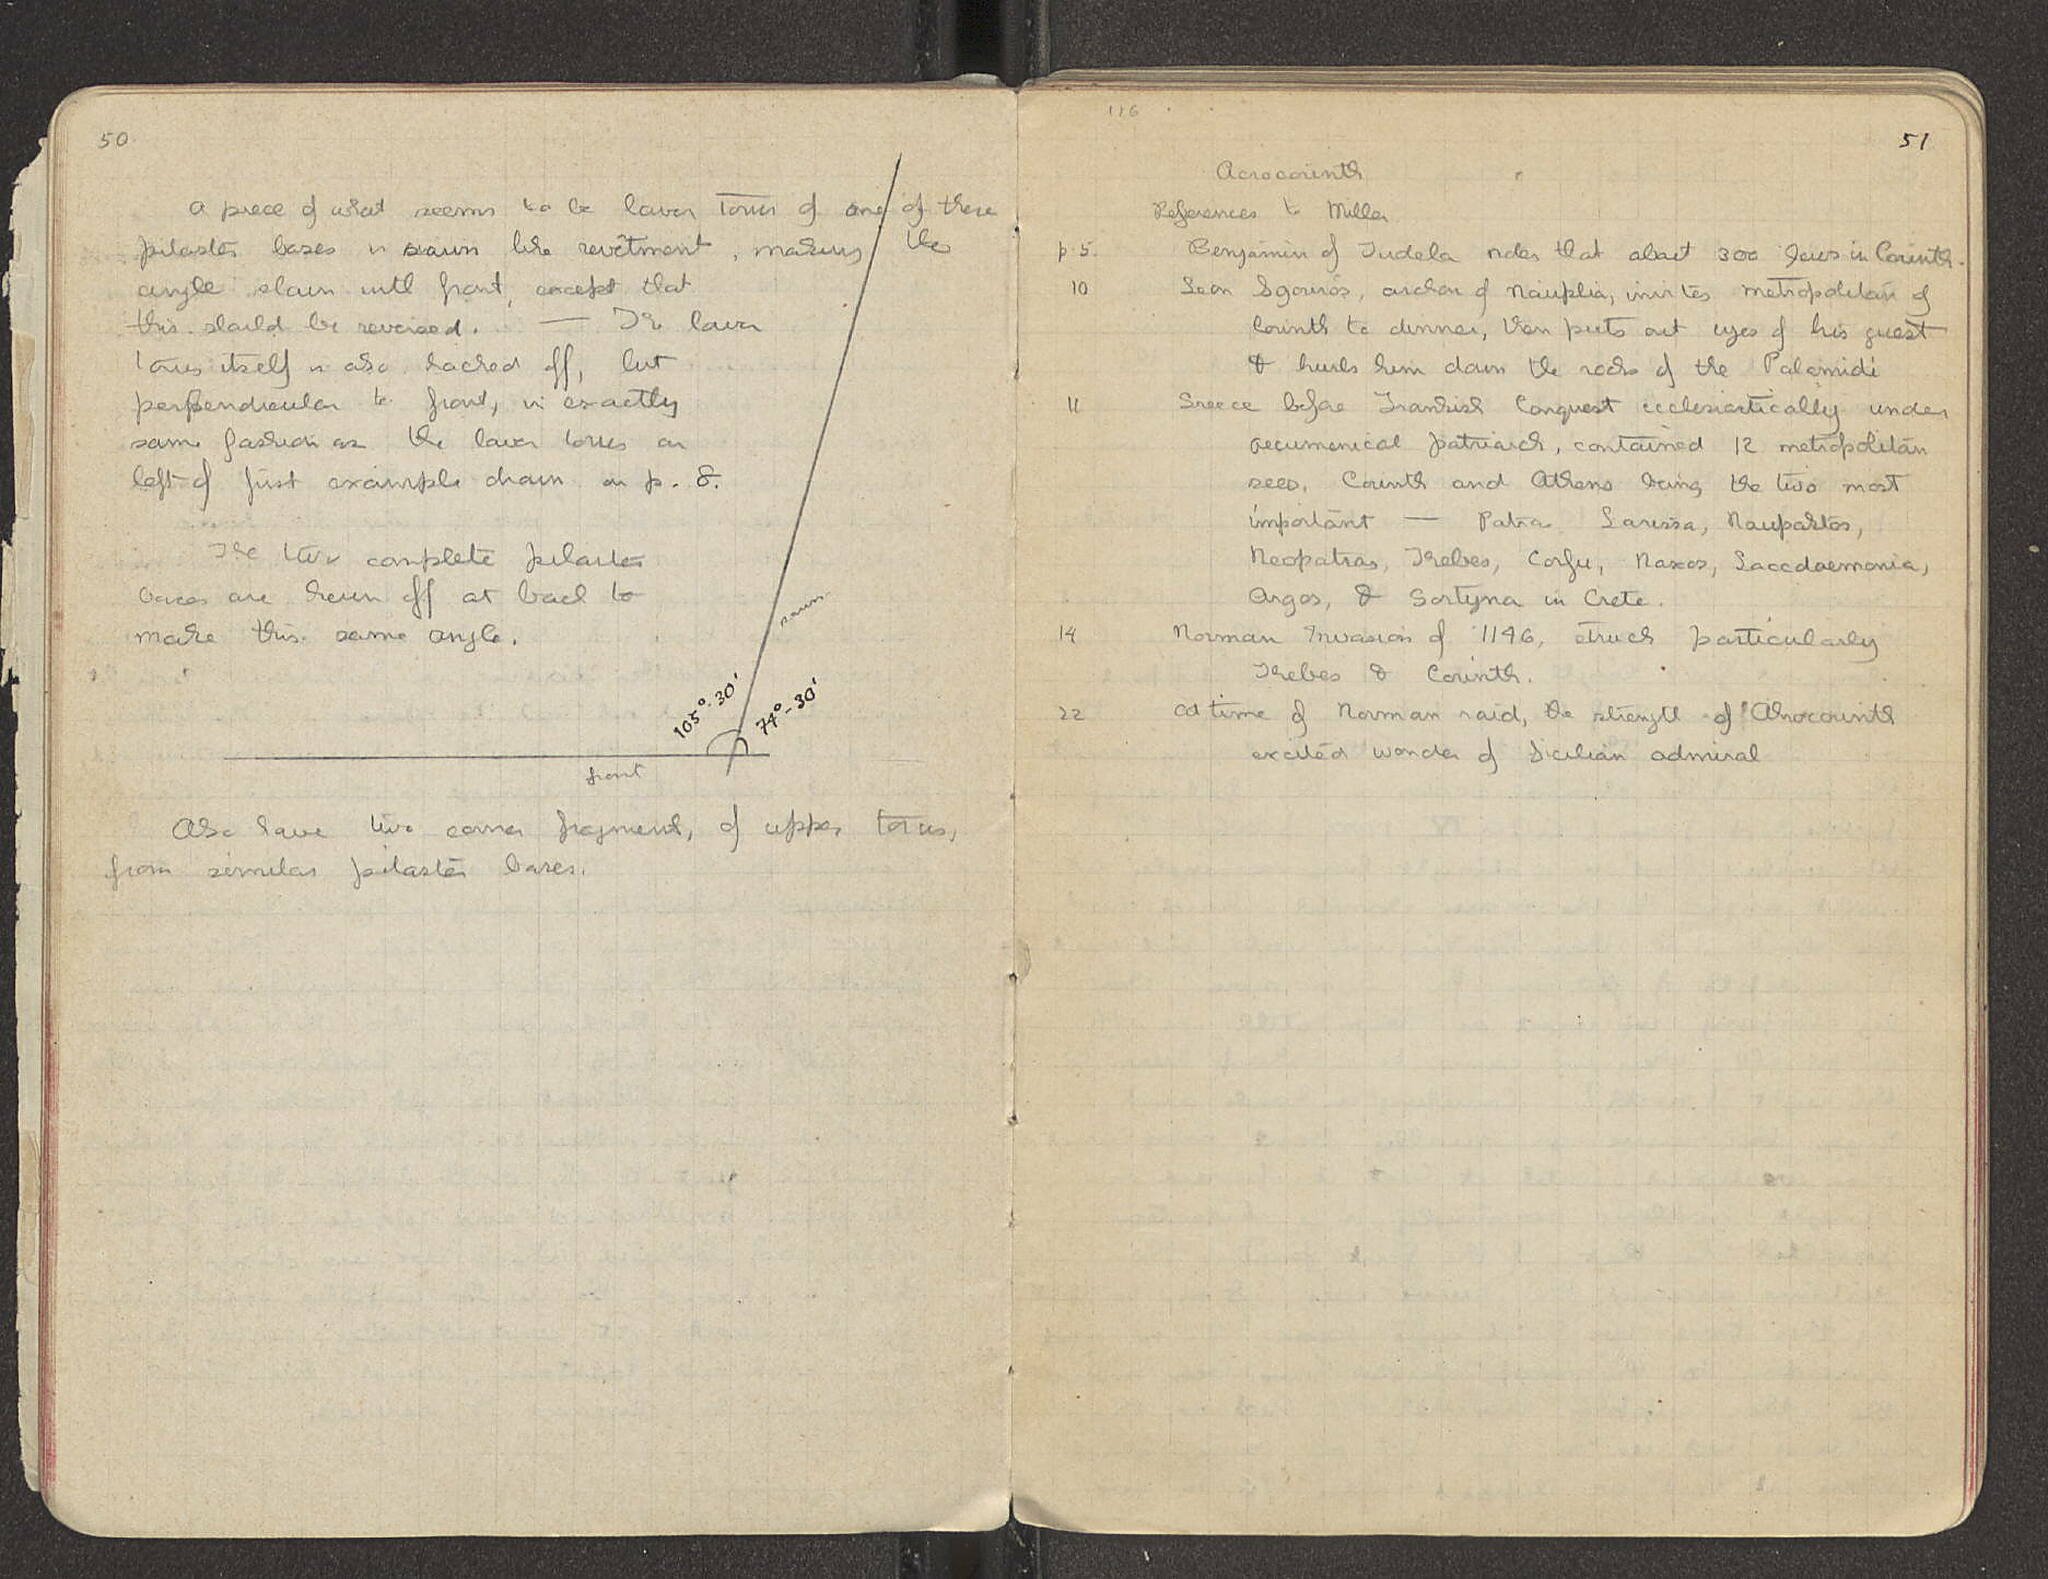 50
A piece of what seems to be lower torus of one of these
pilaster bases is sawn like revetment, making the
angle shown with front, except that
this should be reversed. — The lower
torus itself is also hacked off, but
perpendicular to front, in exactly
same fashion as the lower torus on
left of first example drawn on p. 8.
The two complete pilaster
bases are hewn off at back to
make this same angle.
sawn
105°-30'
74°-30'
front
Also have two corner fragments, of upper torus,
from similar pilaster bases.
116
51
Acrocorinth
References to Miller
p. 5. Benjamin of Tudela notes that about 300 Jews in Corinth.
10 Leon Sgouros, archon of Nauplia, invites metropolitan of
Corinth to dinner, then puts out eyes of his guest
& hurls him down the rocks of the Palamidi
11 Greece before Frankish Conquest ecclesiastically under
oecumenical patriarch, contained 12 metropolitan
sees, Corinth and Athens being the two most
important — Patras Larissa, Naupaktos,
Neopatras, Thebes, Corfu, Naxos, Lacedaemonia,
Argos, & Gortyna in Crete.
14 Norman Invasion of 1146, struck particularly
Thebes & Corinth.
22 At time of Norman raid, the strength of Akrocorinth
excited wonder of Sicilian admiral